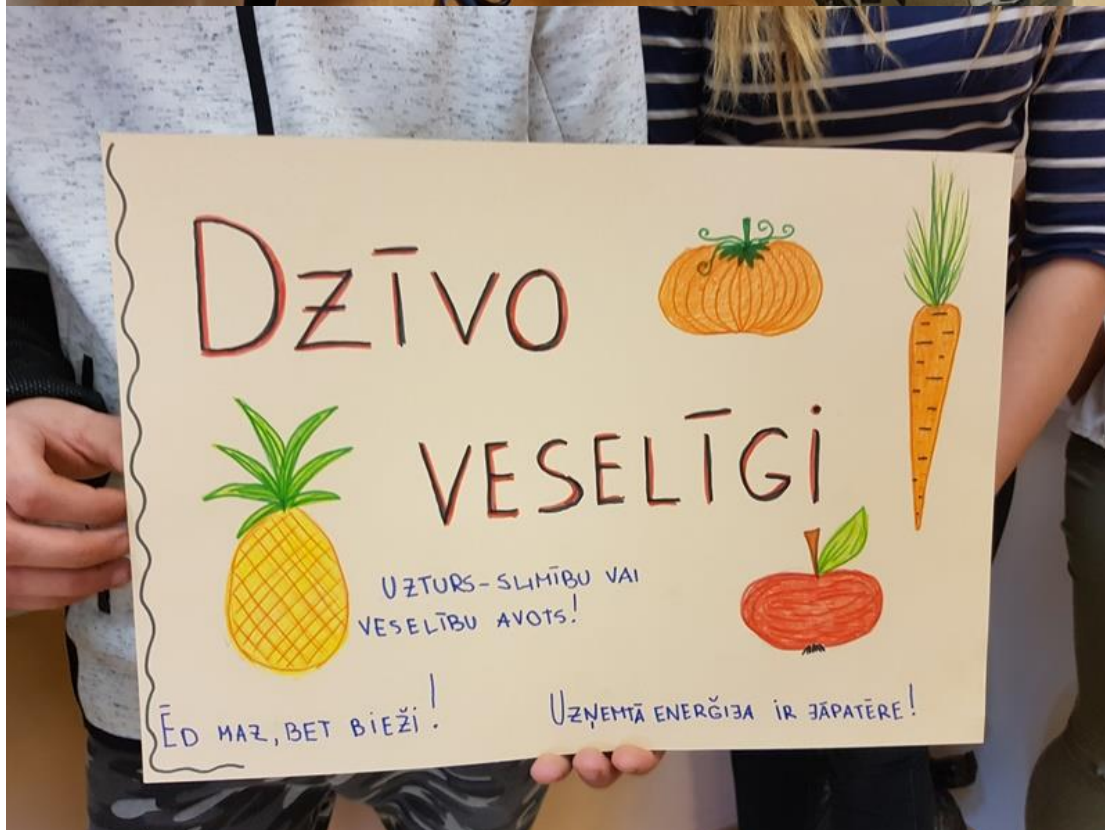 DZĪVO
VESELĪGI
UZTURS-SLIMĪBU VAI
VESELĪBU AVOTS!
ĒD MAZ, BET BIEŽI!
UZŅEMTĀ ENERĢIJA IR JĀPATĒRE!